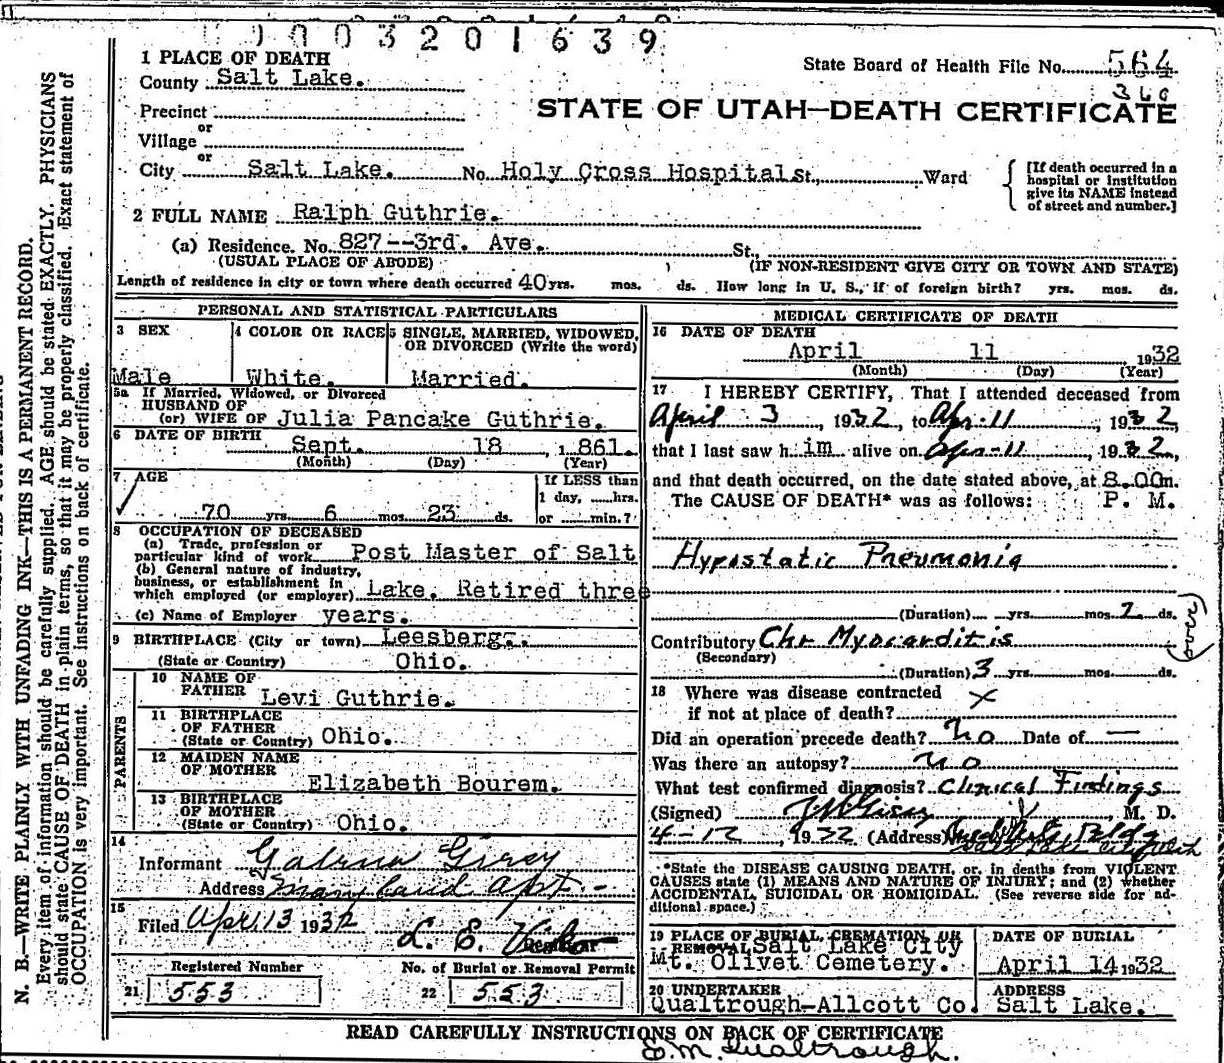 0003201639
1 PLACE OF DEATH
State Board of Health File No. 564
County Salt Lake.
360
STATE OF UTAH—DEATH CERTIFICATE
Precinct
or
Village
or
City Salt Lake. No. Holy Cross Hospital St., Ward
[If death occurred in a hospital or institution give its NAME instead of street and number.]
2 FULL NAME Ralph Guthrie.
(a) Residence. No. 827--3rd. Ave. St.,
(USUAL PLACE OF ABODE) (IF NON-RESIDENT GIVE CITY OR TOWN AND STATE)
Length of residence in city or town where death occurred 40 yrs. mos. ds. How long in U. S., if of foreign birth? yrs. mos. ds.
PERSONAL AND STATISTICAL PARTICULARS
3 SEX
Male
4 COLOR OR RACE
White.
5 SINGLE, MARRIED, WIDOWED, OR DIVORCED (Write the word)
Married.
5a If Married, Widowed, or Divorced
HUSBAND OF
(or) WIFE OF Julia Pancake Guthrie.
6 DATE OF BIRTH Sept. 18, 1861.
(Month) (Day) (Year)
7 AGE
70 yrs. 6 mos. 23 ds.
If LESS than
1 day, hrs.
or min.?
8 OCCUPATION OF DECEASED
(a) Trade, profession or
particular kind of work Post Master of Salt
(b) General nature of industry,
business, or establishment in
which employed (or employer) Lake. Retired three
(c) Name of Employer years.
9 BIRTHPLACE (City or town) Leesberg.
(State or Country) Ohio.
PARENTS
10 NAME OF
FATHER Levi Guthrie.
11 BIRTHPLACE
OF FATHER
(State or Country) Ohio.
12 MAIDEN NAME
OF MOTHER
Elizabeth Bourem.
13 BIRTHPLACE
OF MOTHER
(State or Country) Ohio.
14
Informant
Address Maryland Apt -
15
Filed Apr 13 1932 L. E.
Registered Number
21 553
No. of Burial or Removal Permit
22 553
MEDICAL CERTIFICATE OF DEATH
16 DATE OF DEATH
April 11 1932
(Month) (Day) (Year)
17 I HEREBY CERTIFY, That I attended deceased from
April 3, 1932, to Apr-11, 1932,
that I last saw h im alive on Apr-11, 1932,
and that death occurred, on the date stated above, at 8.00 m.
The CAUSE OF DEATH* was as follows: P. M.
Hypostatic Pneumonia
(Duration) yrs. mos. 7 ds.
Contributory Chr Myocarditis
(Secondary)
(over)
(Duration) 3 yrs. mos. ds.
18 Where was disease contracted
if not at place of death? X
Did an operation precede death? No Date of —
Was there an autopsy? No
What test confirmed diagnosis? Clinical Findings
(Signed) , M. D.
4-12, 1932 (Address) Bldg
*State the DISEASE CAUSING DEATH, or, in deaths from VIOLENT
CAUSES state (1) MEANS AND NATURE OF INJURY; and (2) whether
ACCIDENTAL, SUICIDAL OR HOMICIDAL. (See reverse side for ad-
ditional space.)
19 PLACE OF BURIAL, CREMATION, OR
REMOVAL Salt Lake City
Mt. Olivet Cemetery.
DATE OF BURIAL
April 14 1932
20 UNDERTAKER
Qualtrough-Allcott Co.
ADDRESS
Salt Lake.
READ CAREFULLY INSTRUCTIONS ON BACK OF CERTIFICATE
E.M. Qualtrough.
N. B.—WRITE PLAINLY WITH UNFADING INK—THIS IS A PERMANENT RECORD.
Every item of information should be carefully supplied. AGE should be stated EXACTLY. PHYSICIANS
should state CAUSE OF DEATH in plain terms, so that it may be properly classified. Exact statement of
OCCUPATION is very important. See instructions on back of certificate.